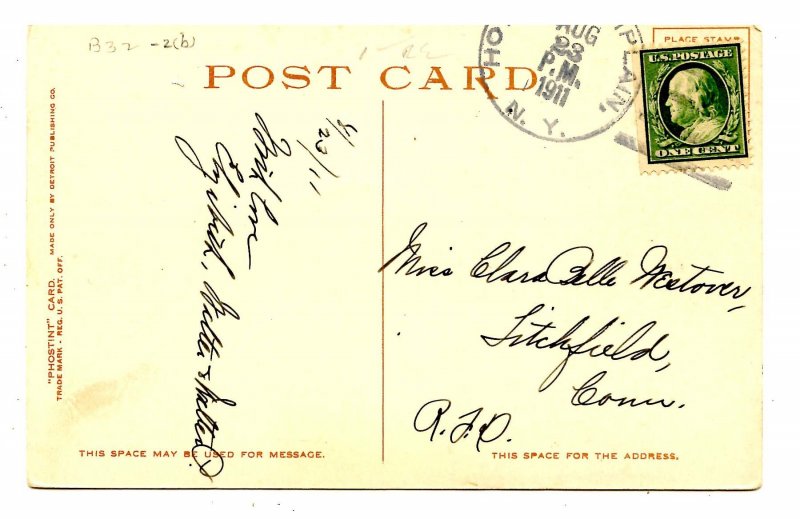 B32-2(b)
POST CARD.
PLACE STAMP
AUG
23
P.M.
1911
N. Y.
PLAIN,
U.S. POSTAGE
ONE CENT
"PHOSTINT" CARD. MADE ONLY BY DETROIT PUBLISHING CO.
TRADE MARK - REG. U.S. PAT. OFF.
8/23/11
With love
Elizabeth, Walter &
Miss Clara Belle Westover,
Litchfield,
Conn.
R.F.D.
THIS SPACE MAY BE USED FOR MESSAGE.
THIS SPACE IS FOR THE ADDRESS.